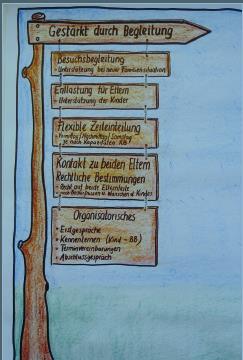 Gestärkt durch Begleitung
Besuchsbegleitung
• Unterstützung bei neuer Familiensituation
Entlastung für Eltern
• Unterstützung der Kinder
Flexible Zeiteinteilung
• Vormittag / Nachmittag / Samstag
je nach Kapazitäten BB
Kontakt zu beiden Eltern
Rechtliche Bestimmungen
• Recht auf beide Elternteile
• nach Bedürfnissen u. Wünschen d. Kindes
Organisatorisches
• Erstgespräche
• Kennenlernen (Kind - BB)
• Terminvereinbarungen
• Abschlussgespräch